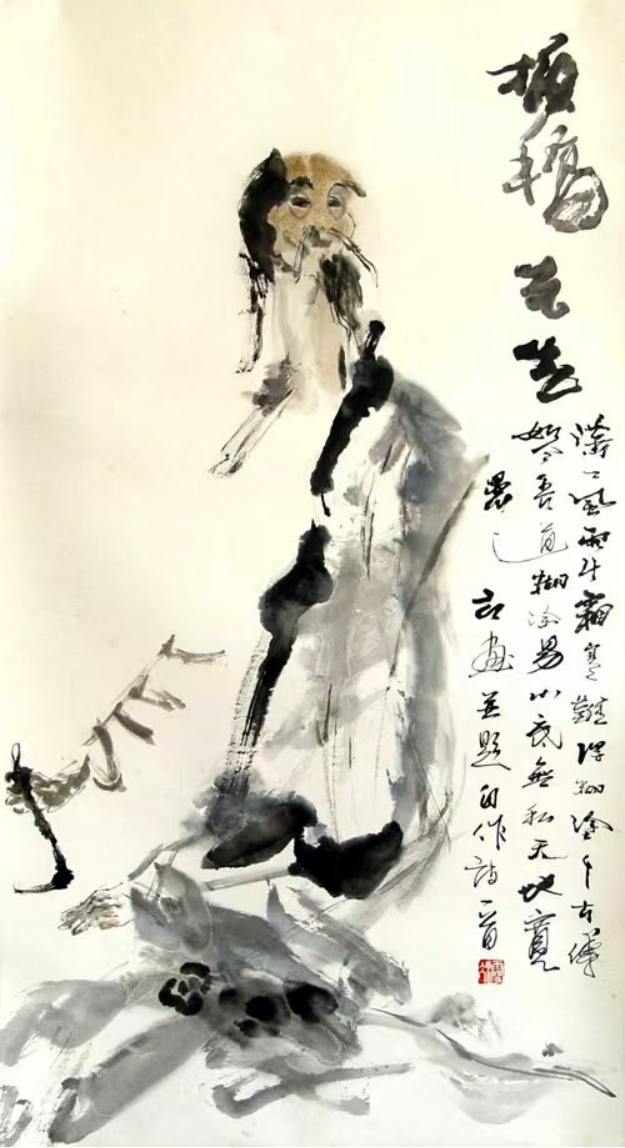 板橋先生
瀟〻風雨斗霜寒難得糊塗千古傳
如今吾道糊涂易心底無私天地寬
畫并題自作詩一首